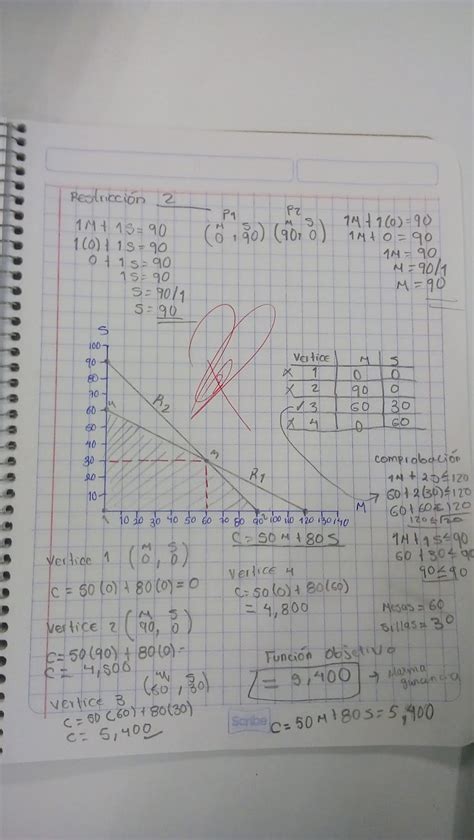 Restricción 2
1M + 1S = 90
1(0) + 1S = 90
0 + 1S = 90
1S = 90
S = 90/1
S = 90
P1
M S
(0, 90)
P2
M S
(90, 0)
1M + 1(0) = 90
1M + 0 = 90
1M = 90
M = 90/1
M = 90
S
100
90
80
70
60
50
40
30
20
10
4
R2
3
R1
10 20 30 40 50 60 70 80 90 100 120 130 140
M
Vertice M S
x 1 0 0
x 2 90 0
✓ 3 60 30
x 4 0 60
comprobación
1M + 2S ≤ 120
60 + 2(30) ≤ 120
60 + 60 ≤ 120
120 ≤ 120
1M + 1S ≤ 90
60 + 30 ≤ 90
90 ≤ 90
Mesas = 60
Sillas = 30
C = 50M + 80S
Vertice 1 (0, 0)
M S
C = 50(0) + 80(0) = 0
Vertice 2 (90, 0)
M S
C = 50(90) + 80(0) =
C = 4,500
Vertice 3
M S
(60, 30)
C = 50(60) + 80(30)
C = 5,400
Vertice 4
C = 50(0) + 80(60)
= 4,800
Función Objetivo
= 5,400
→
ganancia
Scribe
C = 50M + 80S = 5,400